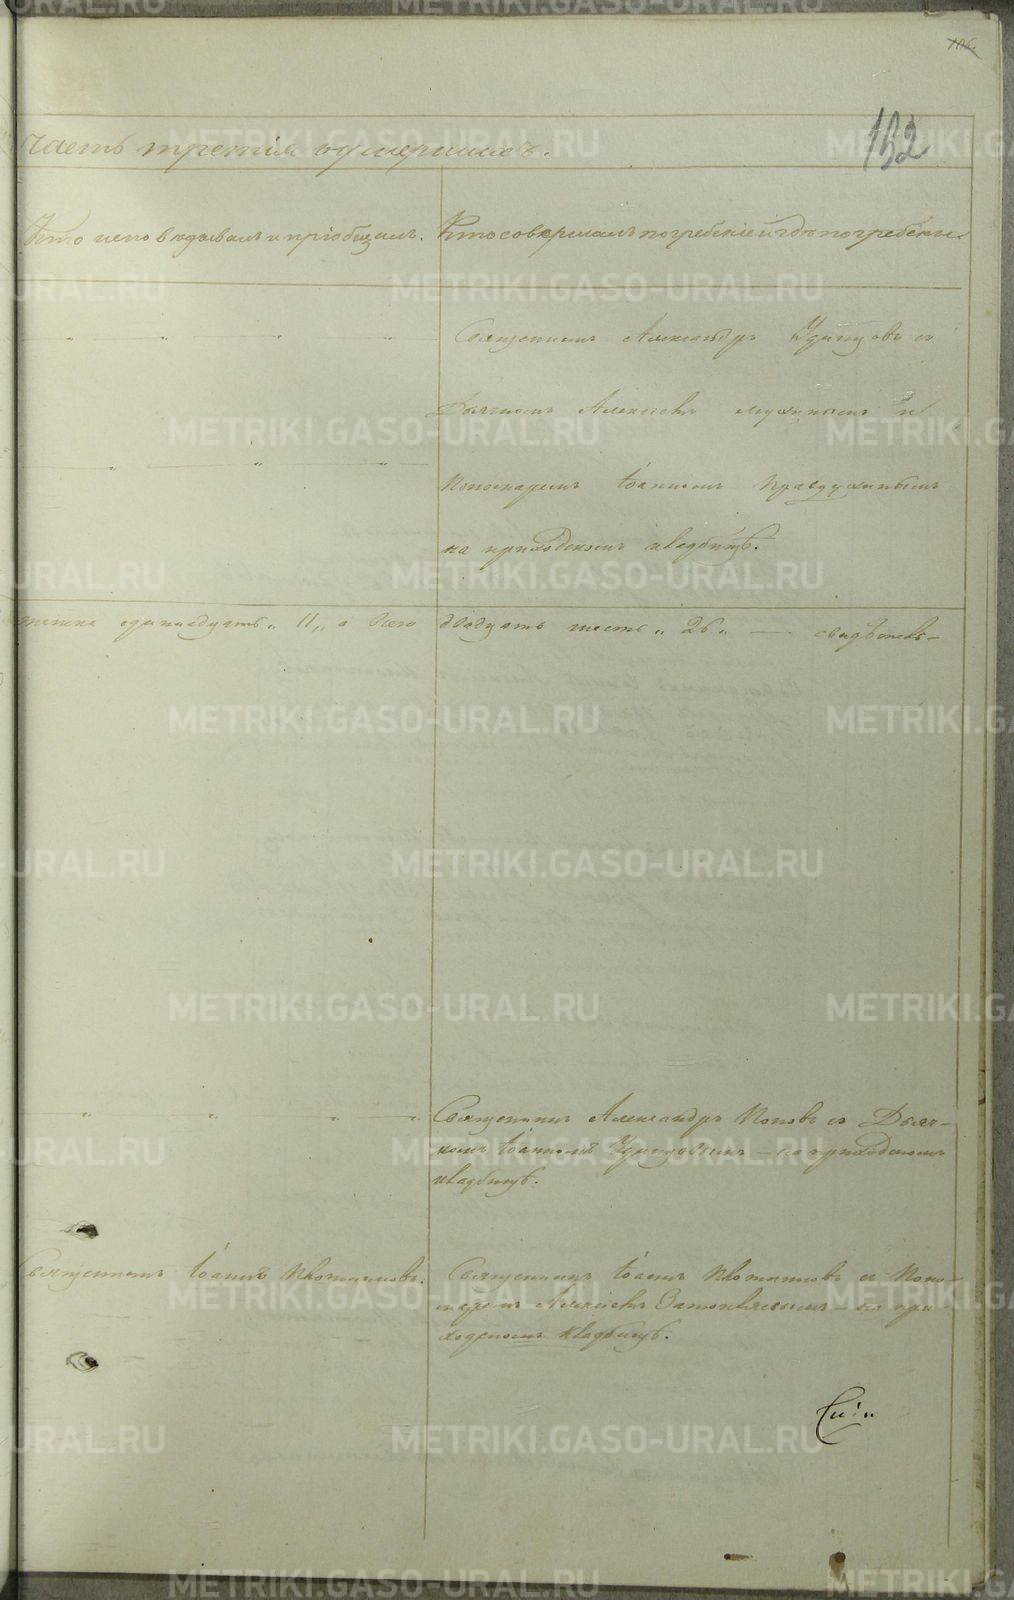 106
152
Часть третія о умершихъ.
Кто исповѣдывалъ и пріобщалъ. Кто совершалъ погребеніе и гдѣ погребены.
Священникъ Александръ Удинцовъ съ
Дьячкомъ Алексіемъ и
Пономаремъ Іоанномъ Правдухинымъ
на приходскомъ кладбищѣ.
одиннадцать „ 11 „ а всего двадцать шесть „ 26 „ —
Священникъ Александръ Поповъ съ Дьяч-
комъ Іоанномъ Удинцовымъ – на приходскомъ
кладбищѣ.
Священникъ Іоаннъ Священникъ Іоаннъ съ Поно-
маремъ Алексіемъ – на при-
ходскомъ кладбищѣ.
METRIKI.GASO-URAL.RU